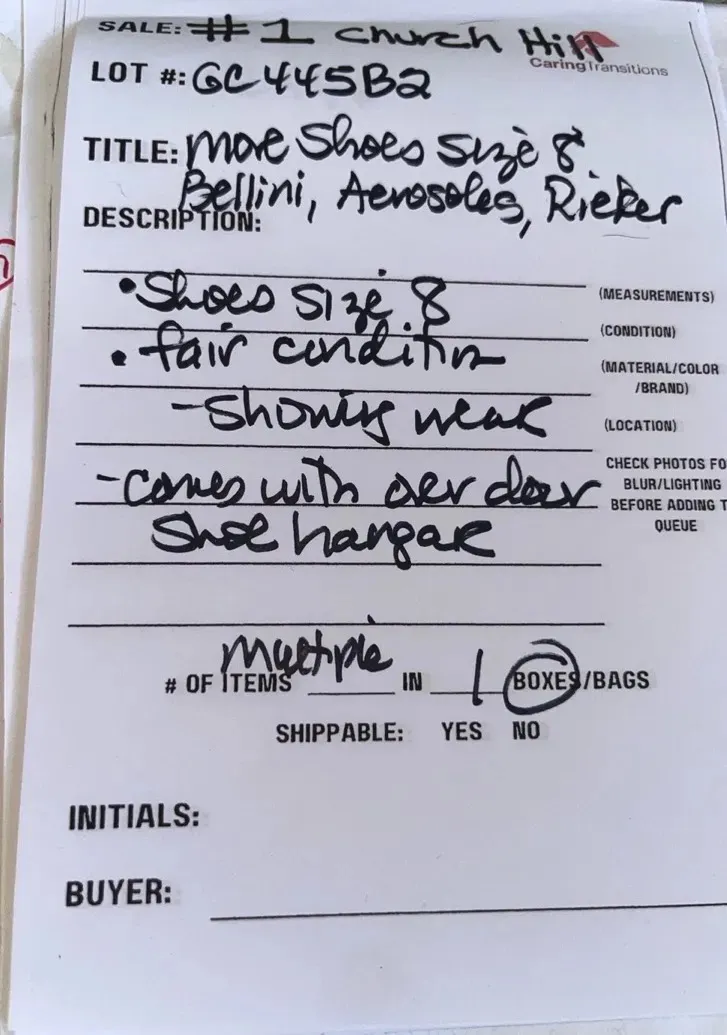 SALE: #1 Church Hill
CaringTransitions
LOT #: GC445B2
TITLE: More Shoes Size 8
Bellini, Aerosoles, Rieker
DESCRIPTION:
• Shoes Size 8
(MEASUREMENTS)
• fair condition
(CONDITION)
(MATERIAL/COLOR
/BRAND)
- Showing wear
(LOCATION)
- comes with over door
Shoe hangar
CHECK PHOTOS FO
BLUR/LIGHTING
BEFORE ADDING T
QUEUE
# OF ITEMS Multiple IN 1 BOXES/BAGS
SHIPPABLE: YES NO
INITIALS:
BUYER: